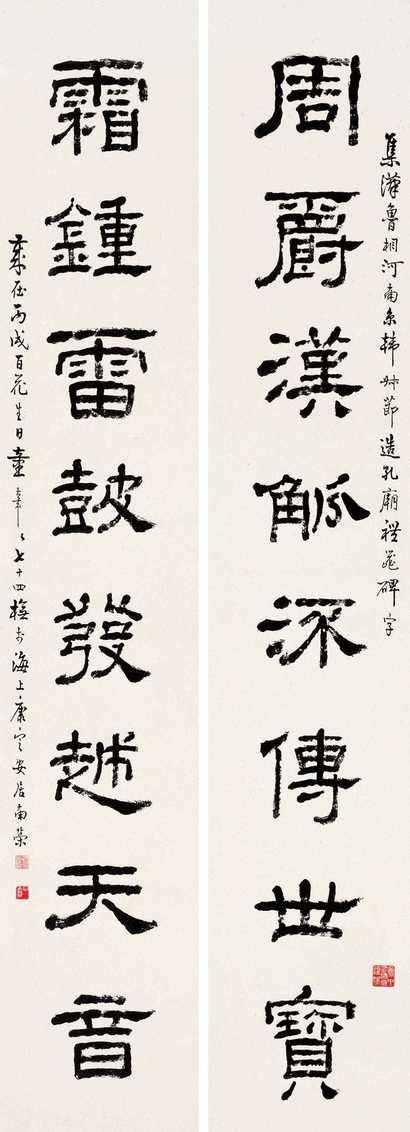 集漢魯相河南京韓叔節造孔廟禮器碑字
周爵漢觚流傳世寶
霜鍾雷鼓發越天音
歲在丙戌百花生日童七十四橅於海上康定安居南榮